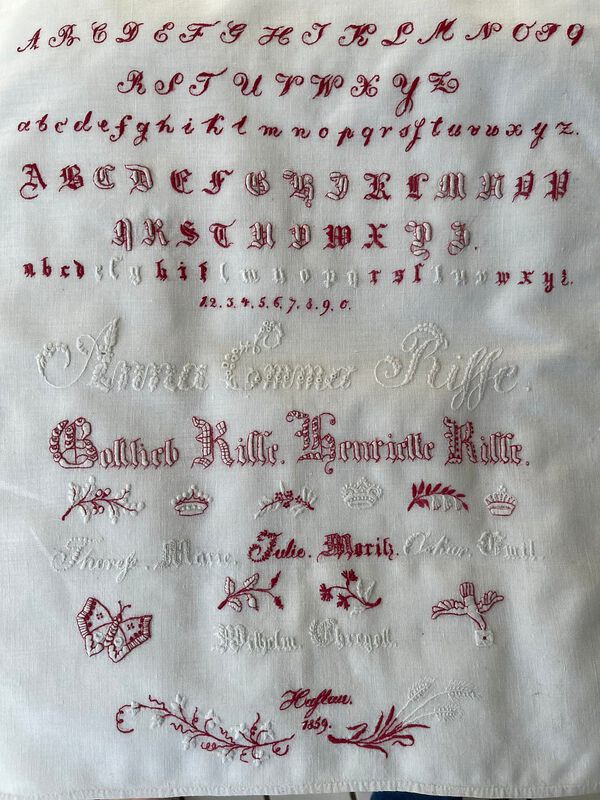 A B C D E F G H I K L M N O P Q
R S T U V W X Y Z
a b c d e f g h i k l m n o p q r s ſ t u v w x y z.
A B C D E F G H I K L M N O P
Q R S T U V W X Y Z.
a b c d e f g h i k l m n o p q r s ſ t u v w x y z.
1.2.3.4.5.6.7.8.9.0.
Anna Emma Riſſe.
Gottlieb Riſſe. Henriette Riſſe.
Thereſe. Marie. Julie. Moritz. Oskar. Emil.
Wilhelm. Ehregott.
Haſlau.
1859.